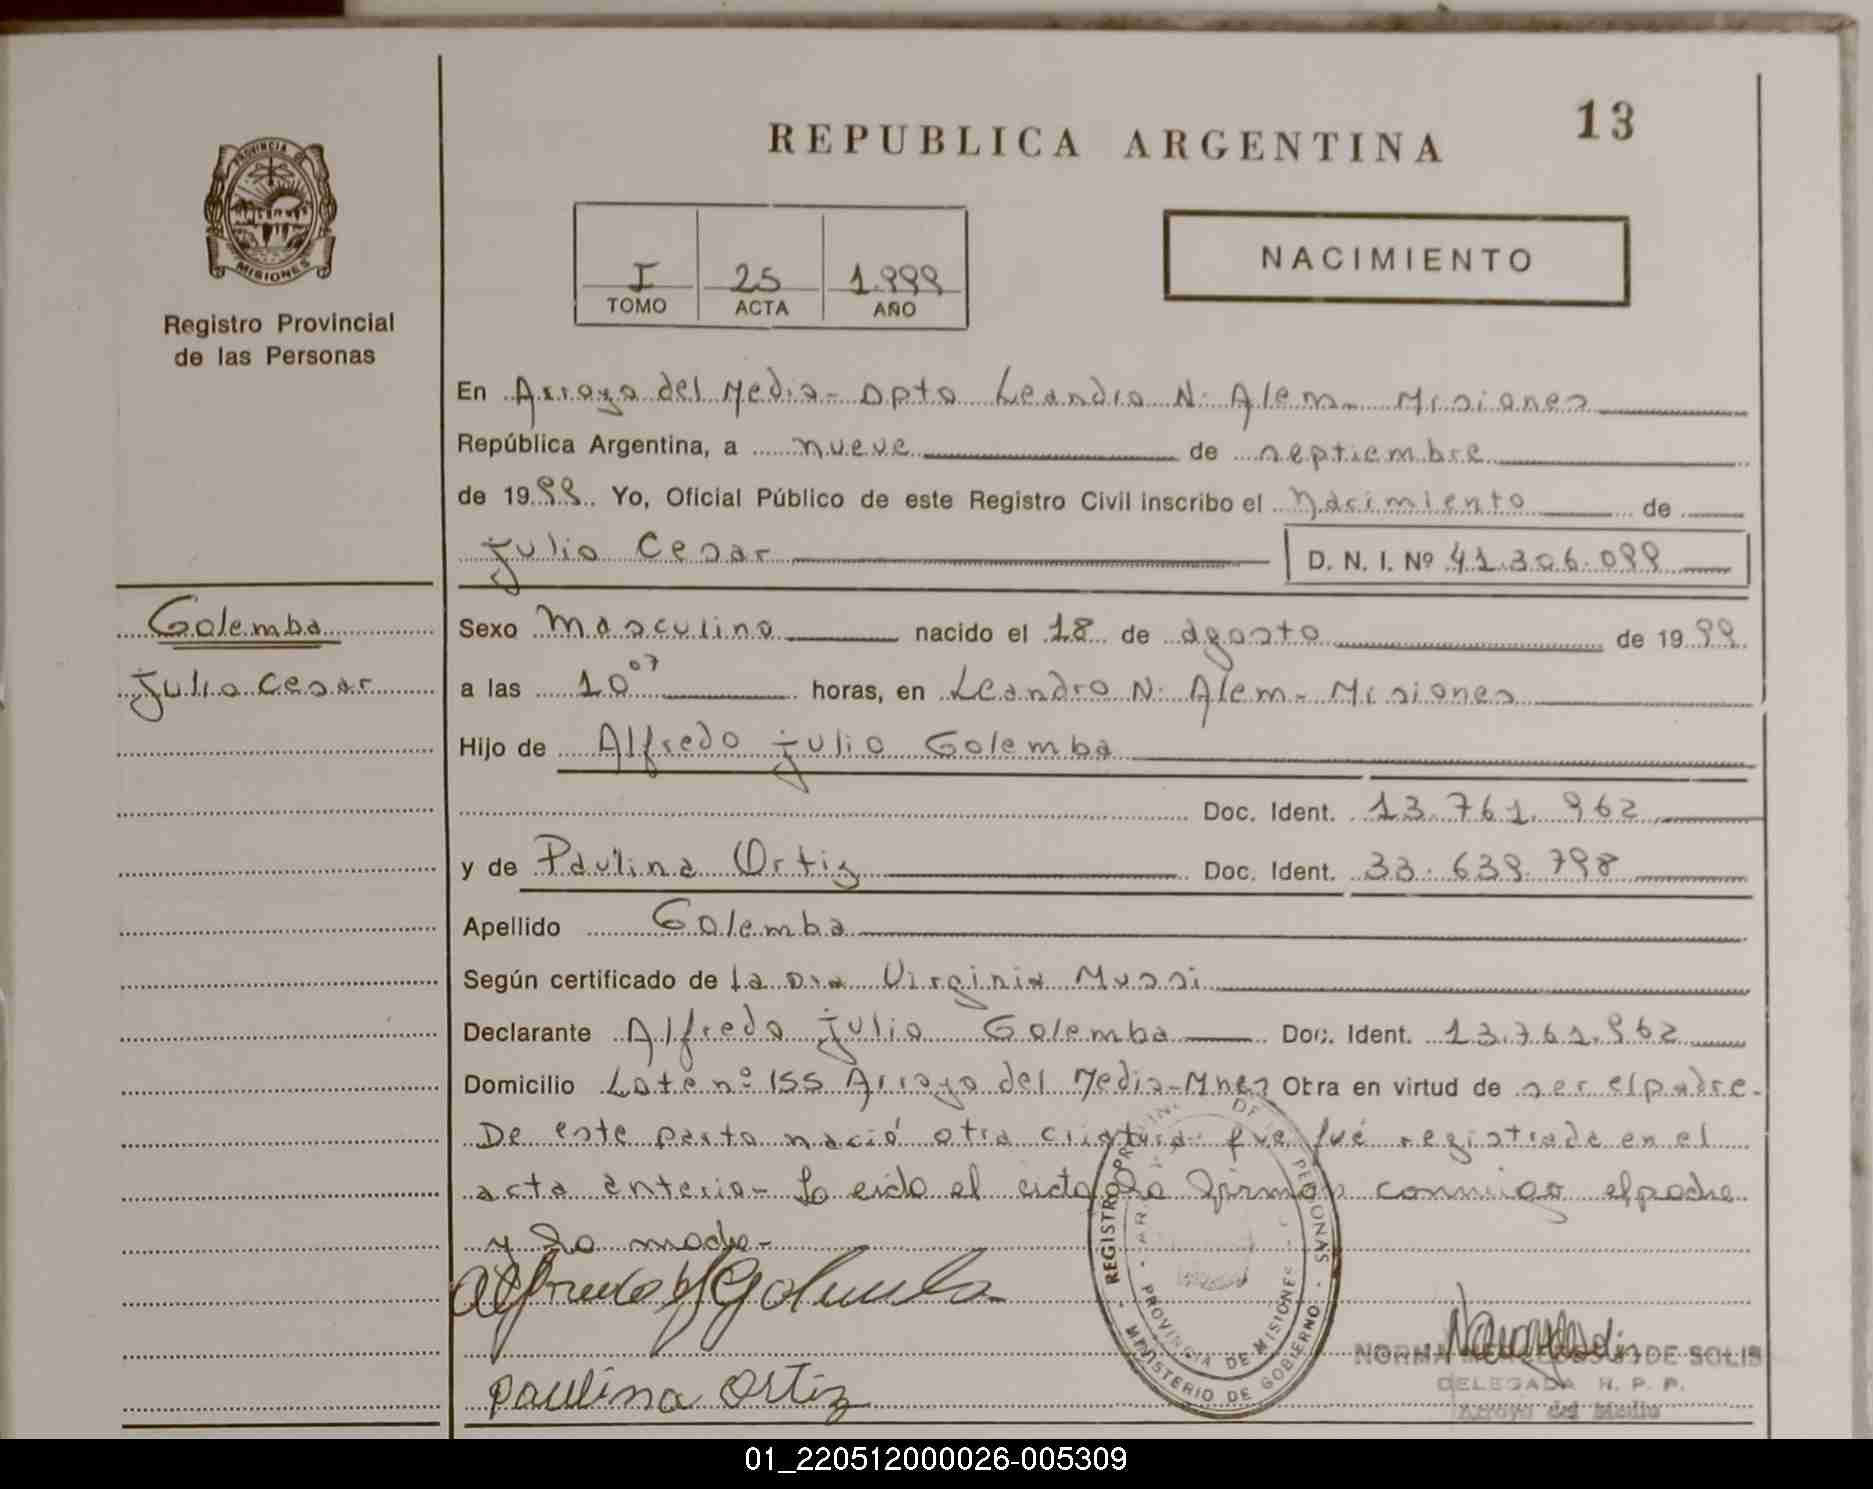 13
REPUBLICA ARGENTINA
PROVINCIA DE
MISIONES
Registro Provincial
de las Personas
I 25 1.999
TOMO ACTA AÑO
NACIMIENTO
En Arroyo del Medio - Dpto Leandro N. Alem - Misiones
República Argentina, a nueve de septiembre
de 1999. Yo, Oficial Público de este Registro Civil inscribo el Nacimiento de
Julio Cesar D. N. I. Nº 41.306.099
Golemba
Julio Cesar
Sexo Masculino nacido el 18 de agosto de 1999.
a las 10 07 horas, en Leandro N. Alem - Misiones
Hijo de Alfredo Julio Golemba
Doc. Ident. 13.761.962
y de Paulina Ortiz Doc. Ident. 33.639.798
Apellido Golemba
Según certificado de la Dra Virginia Mussi
Declarante Alfredo Julio Golemba Doc. Ident. 13.761.962
Domicilio Lote nº 155 Arroyo del Medio - Mnes Obra en virtud de ser el padre.
De este parto nació otra criatura que fué registrada en el
acta anterior - Leido el acta la firman conmigo el padre
y la madre -
Alfredo J Golemba
Paulina Ortiz
REGISTRO PROVINCIAL DE LAS PERSONAS
MINISTERIO DE GOBIERNO
PROVINCIA DE MISIONES
NORMA DE SOLIS
DELEGADA R. P. P.
Arroyo del Medio
01_220512000026-005309